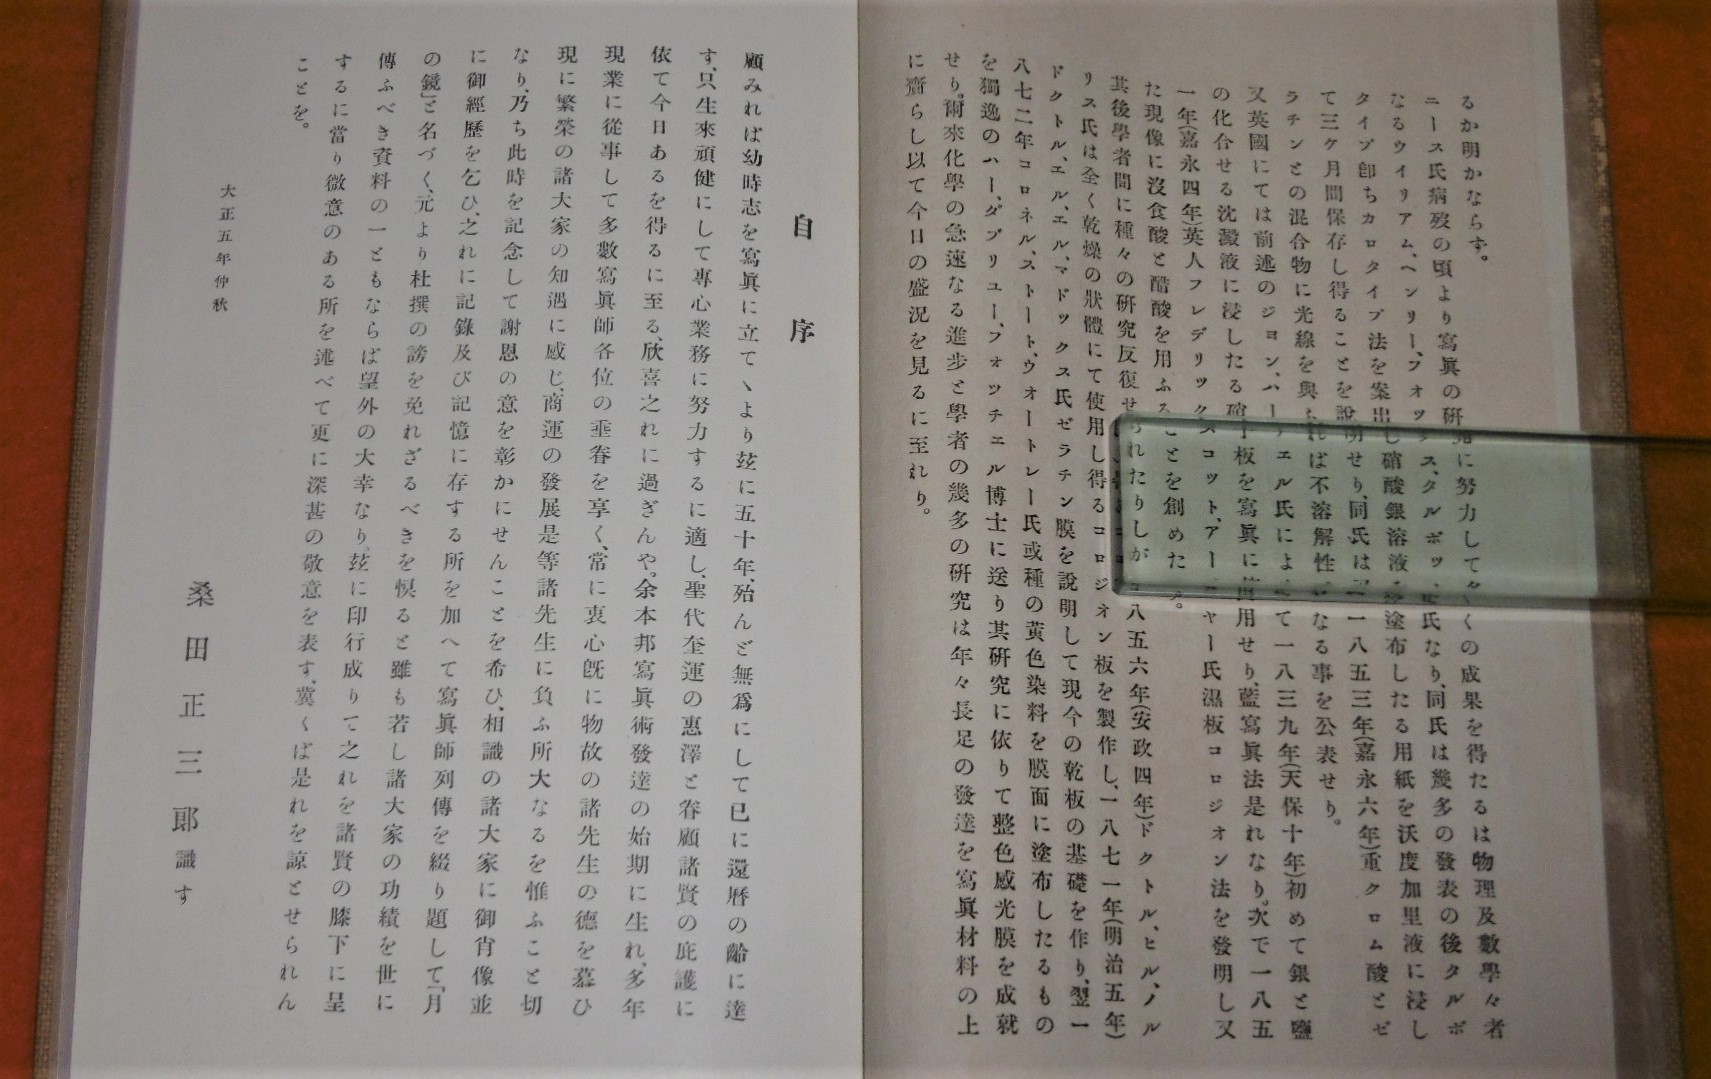 るか明かならす。
ニース氏病歿の頃より寫眞の硏究に努力して多くの成果を得たるは物理及數學々者
なるウイリアム、ヘンリー、フォックス、タルボット氏なり、同氏は幾多の發表の後タルボ
タイプ卽ちカロタイプ法を案出し硝酸銀溶液を塗布したる用紙を沃度加里液に浸し
て三ケ月間保存し得ることを說明せり、同氏は又一八五三年(嘉永六年)重クロム酸とゼ
ラチンとの混合物に光線を與ふれば不溶解性となる事を公表せり。
又英國にては前述のジョン、ハーシェル氏によりて一八三九年(天保十年)初めて銀と鹽
の化合せる沈澱液に浸したる硝子板を寫眞に使用せり、藍寫眞法是れなり。次で一八五
一年(嘉永四年)英人フレデリック、スコット、アーチャー氏濕板コロジオン法を發明し又
た現像に沒食酸と醋酸を用ふることを創めたり。
其後學者間に種々の硏究反復せられたりしが一八五六年(安政四年)ドクトル、ヒル、ノル
リス氏は全く乾燥の狀體にて使用し得るコロジオン板を製作し、一八七一年(明治五年)
ドクトル、エル、エル、マドックス氏ゼラチン膜を說明して現今の乾板の基礎を作り、翌一
八七二年コロネル、ストート、ウオートレー氏或種の黃色染料を膜面に塗布したるもの
を獨逸のハー、ダブリユー、フォッチエル博士に送り其硏究に依りて整色感光膜を成就
せり。爾來化學の急速なる進步と學者の幾多の硏究は年々長足の發達を寫眞材料の上
に齎らし以て今日の盛況を見るに至れり。
自序
顧みれば幼時志を寫眞に立てゝより玆に五十年、殆んど無爲にして已に還曆の齡に達
す、只生來頑健にして專心業務に努力するに適し、聖代奎運の惠澤と眷顧諸賢の庇護に
依て今日あるを得るに至る、欣喜之れに過ぎんや。余本邦寫眞術發達の始期に生れ、多年
現業に從事して多數寫眞師各位の垂眷を享く、常に衷心旣に物故の諸先生の德を慕ひ
現に繁榮の諸大家の知遇に感じ、商運の發展是等諸先生に負ふ所大なるを惟ふこと切
なり、乃ち此時を記念して謝恩の意を彰かにせんことを希ひ、相識の諸大家に御肖像並
に御經歷を乞ひ、之れに記錄及び記憶に存する所を加へて寫眞師列傳を綴り題して「月
の鏡」と名づく、元より杜撰の謗を免れざるべきを惧ると雖も若し諸大家の功績を世に
傳ふべき資料の一ともならば望外の大幸なり。玆に印行成りて之れを諸賢の膝下に呈
するに當り微意のある所を述べて更に深甚の敬意を表す、冀くば是れを諒とせられん
ことを。
大正五年仲秋
桑田正三郎識す